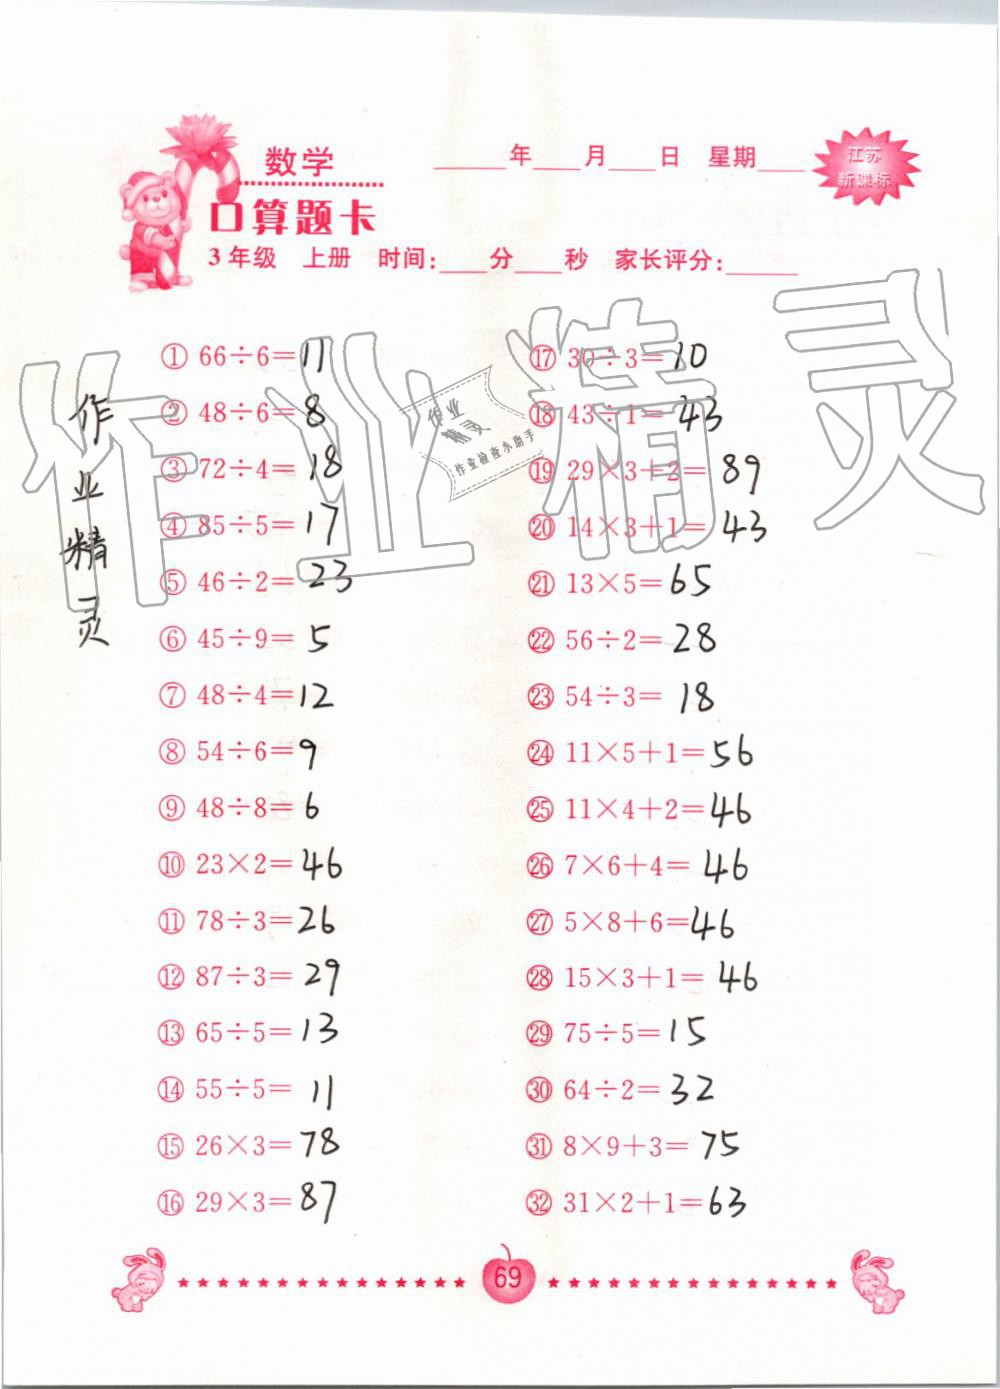 数学
____年___月___日 星期___
江苏
新课标
口算题卡
3年级 上册 时间:___分___秒 家长评分:____
作业精灵
作业精灵
作业
精灵
作业检查小助手
① 66÷6=11
② 48÷6=8
③ 72÷4=18
④ 85÷5=17
⑤ 46÷2=23
⑥ 45÷9=5
⑦ 48÷4=12
⑧ 54÷6=9
⑨ 48÷8=6
⑩ 23×2=46
⑪ 78÷3=26
⑫ 87÷3=29
⑬ 65÷5=13
⑭ 55÷5=11
⑮ 26×3=78
⑯ 29×3=87
⑰ 30÷3=10
⑱ 43÷1=43
⑲ 29×3+2=89
⑳ 14×3+1=43
㉑ 13×5=65
㉒ 56÷2=28
㉓ 54÷3=18
㉔ 11×5+1=56
㉕ 11×4+2=46
㉖ 7×6+4=46
㉗ 5×8+6=46
㉘ 15×3+1=46
㉙ 75÷5=15
㉚ 64÷2=32
㉛ 8×9+3=75
㉜ 31×2+1=63
69